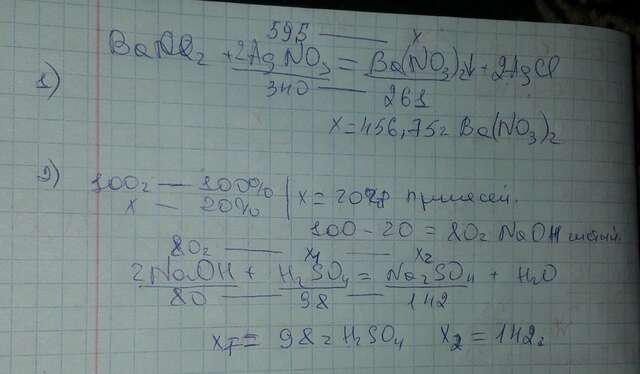 595 — x
1) BaCl2 + 2AgNO3 = Ba(NO3)2↓ + 2AgCl
340 — 261
x=456,75г Ba(NO3)2
2) 100г — 100%
x — 20%
x=20г примесей.
100-20=80г NaOH чистый.
80г — x1 — x2
2NaOH + H2SO4 = Na2SO4 + H2O
80 — 98 — 142
x1= 98г H2SO4 x2=142г